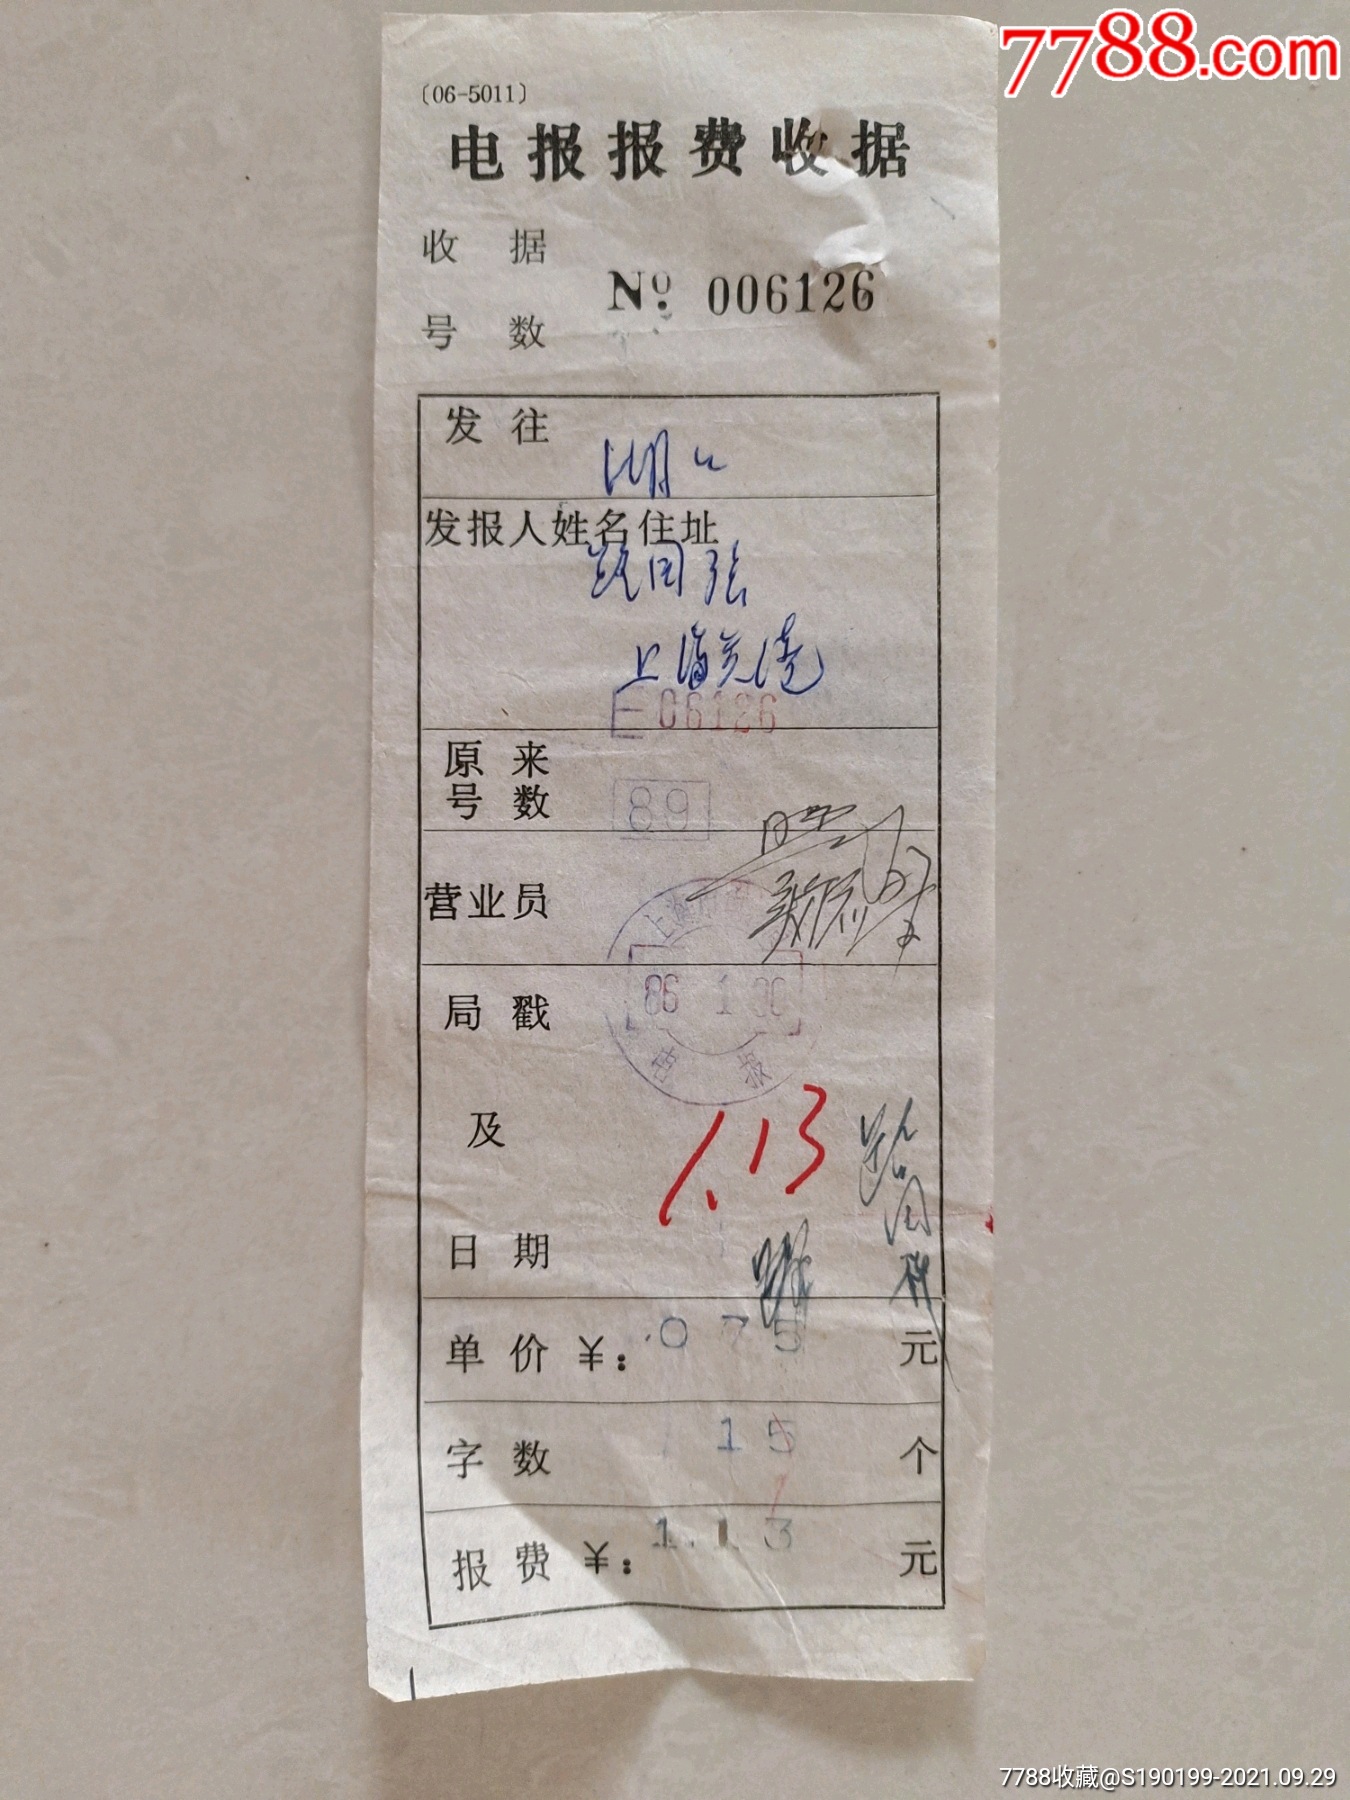 7788.com
〔06-5011〕
电报报费收据
收据
号数
№ 006126
发往
湖口
发报人姓名住址
上海
E 06126
原来
号数
89
营业员
局戳
86 1
报
及
1.13
日期
单价¥: .075 元
字数 15 个
报费¥: 1.13 元
7788收藏@S190199-2021.09.29